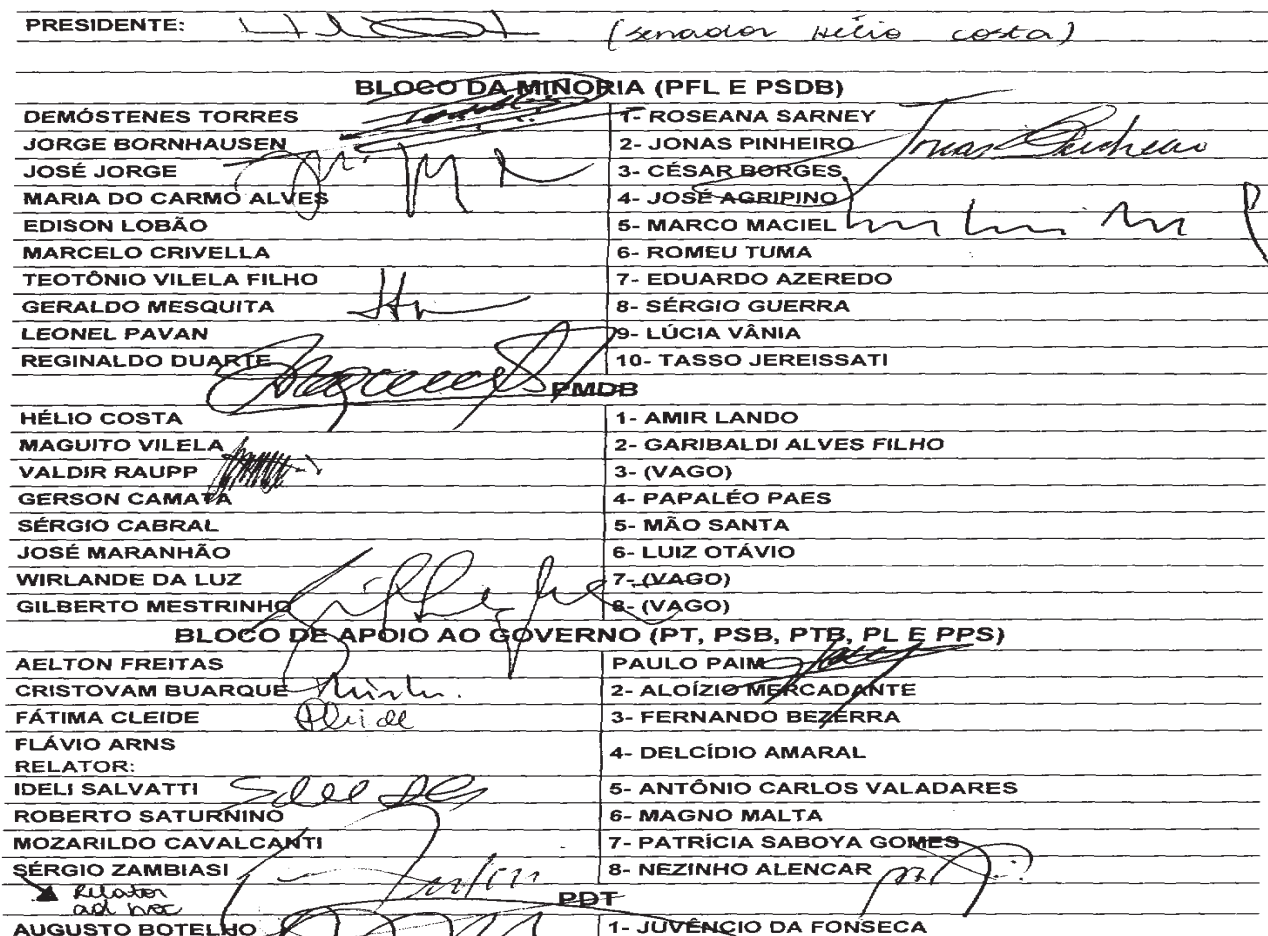 PRESIDENTE: (senador Hélio costa)
BLOCO DA MINORIA (PFL E PSDB)
DEMÓSTENES TORRES 1- ROSEANA SARNEY
JORGE BORNHAUSEN 2- JONAS PINHEIRO Jonas Pinheiro
JOSÉ JORGE 3- CÉSAR BORGES
MARIA DO CARMO ALVES 4- JOSÉ AGRIPINO
EDISON LOBÃO 5- MARCO MACIEL
MARCELO CRIVELLA 6- ROMEU TUMA
TEOTÔNIO VILELA FILHO 7- EDUARDO AZEREDO
GERALDO MESQUITA 8- SÉRGIO GUERRA
LEONEL PAVAN 9- LÚCIA VÂNIA
REGINALDO DUARTE 10- TASSO JEREISSATI
PMDB
HÉLIO COSTA 1- AMIR LANDO
MAGUITO VILELA 2- GARIBALDI ALVES FILHO
VALDIR RAUPP 3- (VAGO)
GERSON CAMATA 4- PAPALÉO PAES
SÉRGIO CABRAL 5- MÃO SANTA
JOSÉ MARANHÃO 6- LUIZ OTÁVIO
WIRLANDE DA LUZ 7- (VAGO)
GILBERTO MESTRINHO 8- (VAGO)
BLOCO DE APOIO AO GOVERNO (PT, PSB, PTB, PL E PPS)
AELTON FREITAS PAULO PAIM
CRISTOVAM BUARQUE 2- ALOÍZIO MERCADANTE
FÁTIMA CLEIDE 3- FERNANDO BEZERRA
FLÁVIO ARNS 4- DELCÍDIO AMARAL
RELATOR:
IDELI SALVATTI 5- ANTÔNIO CARLOS VALADARES
ROBERTO SATURNINO 6- MAGNO MALTA
MOZARILDO CAVALCANTI 7- PATRÍCIA SABOYA GOMES
SÉRGIO ZAMBIASI 8- NEZINHO ALENCAR
Relator
ad hoc
PDT
AUGUSTO BOTELHO 1- JUVÊNCIO DA FONSECA